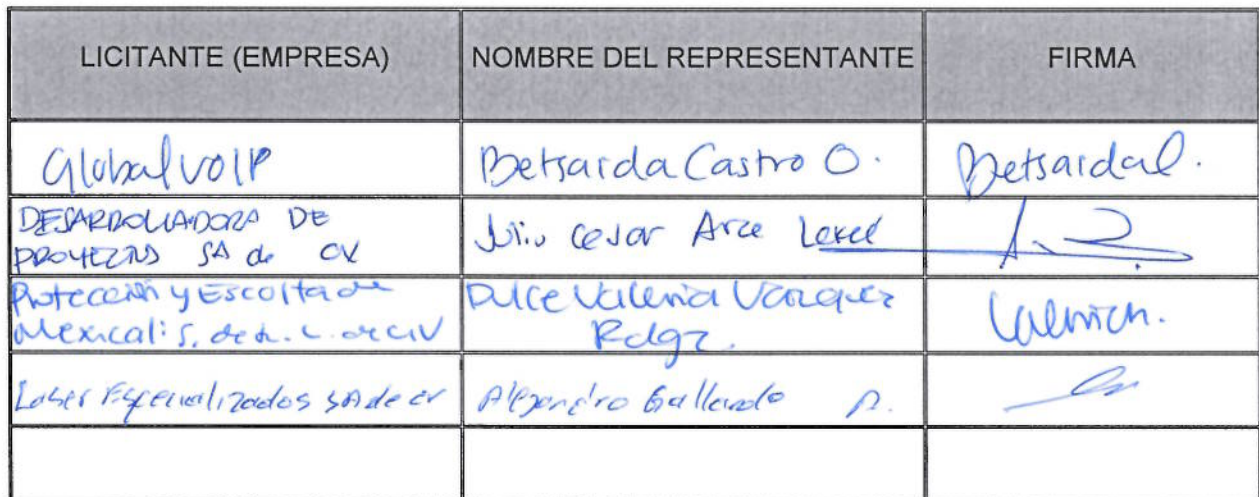 LICITANTE (EMPRESA) NOMBRE DEL REPRESENTANTE FIRMA
Globalvoip Betsaida Castro O. Betsaida C.
DESARROLLADORA DE
PROYECTOS SA de CV Julio Cesar Arce
Protección y Escolta de Dulce Valeria Vazquez Valeria
Mexicali S. de R. L. de CV Rdgz.
Laser Especializados SA de CV Alejandro Gallardo R.